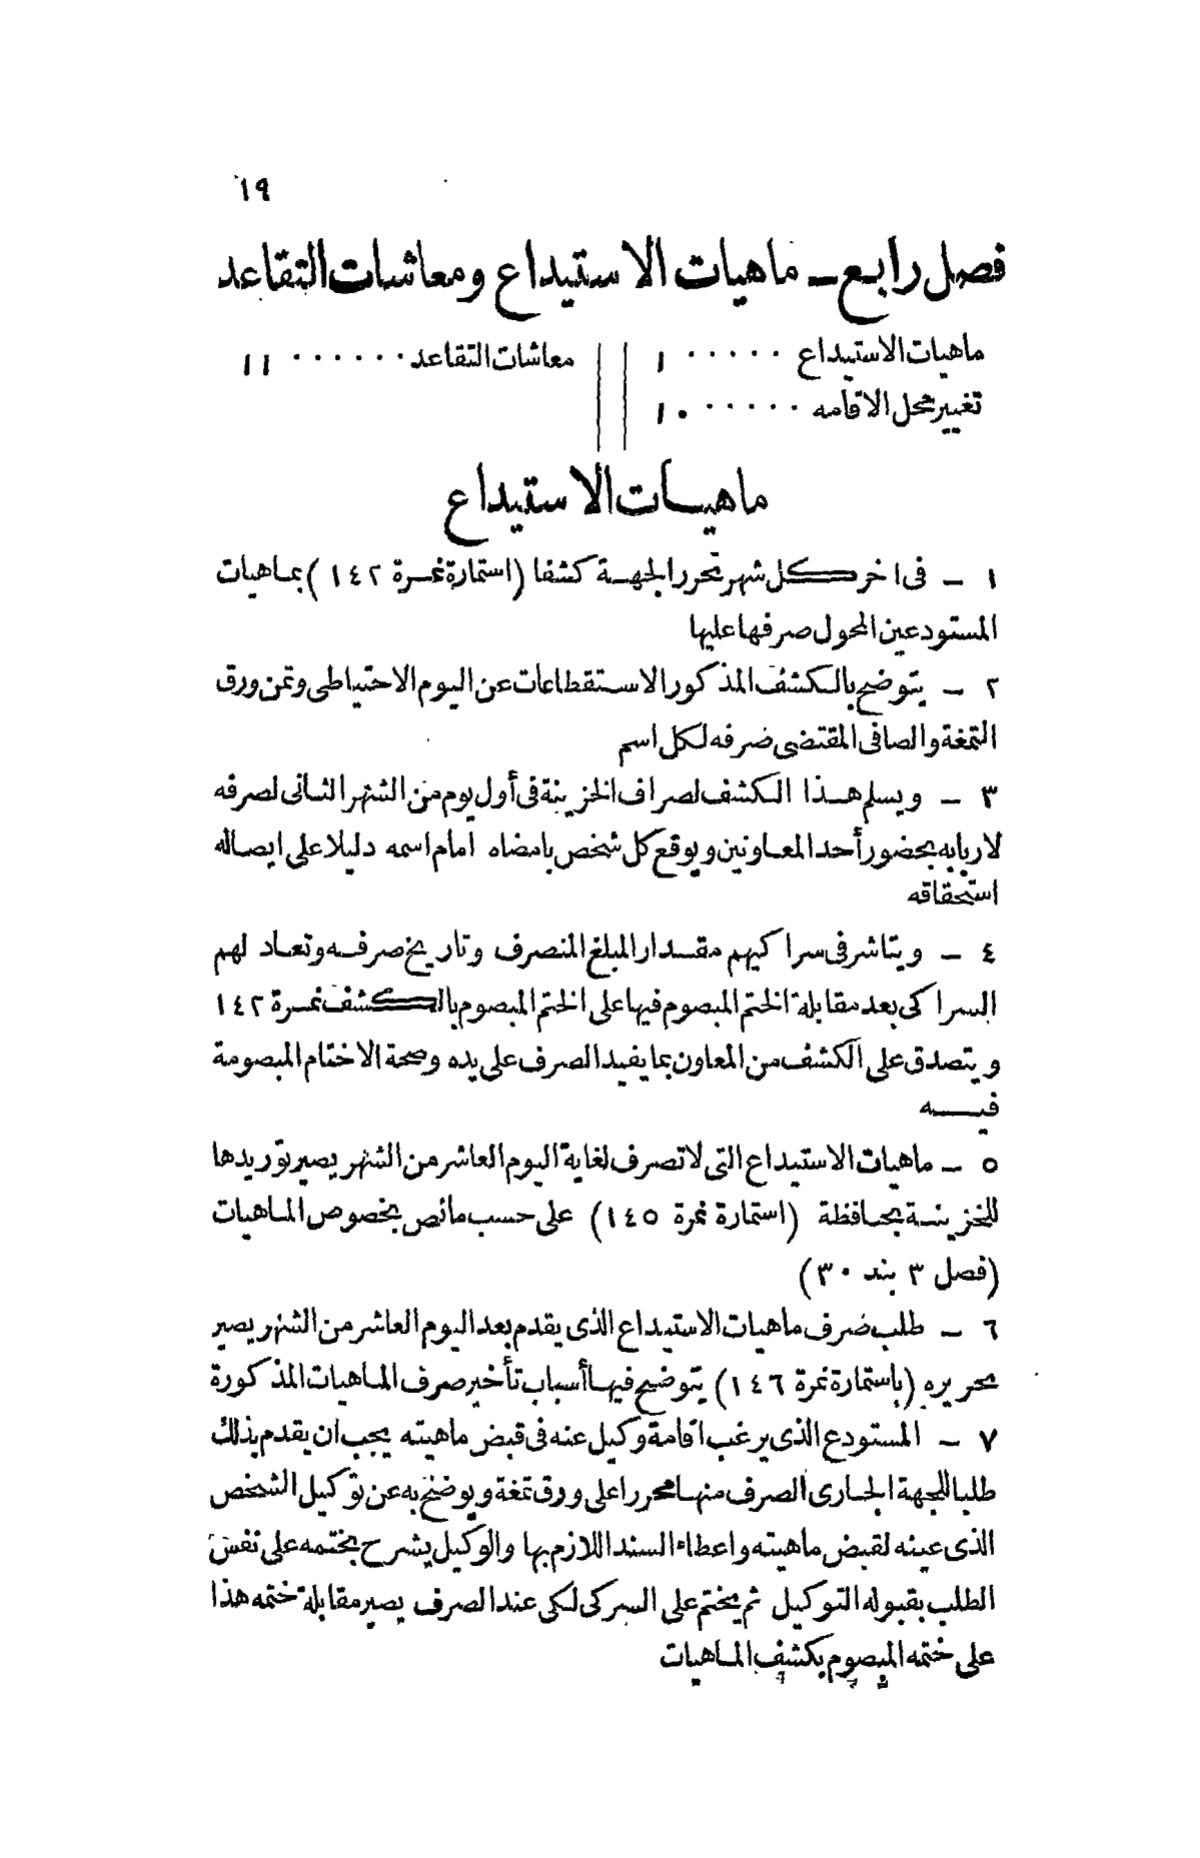 ١٩
فصل رابع ـ ماهيات الاستيداع ومعاشات التقاعد
ماهيات الاستيداع ٠٠٠٠٠ ١
تغيير محل الاقامه ٠٠٠٠٠ ١٠
معاشات التقاعد ٠٠٠٠٠٠ ١١
ماهيات الاستيداع
١ ـ فى اخر كل شهر تحرر الجهة كشفا (استمارة نمرة ١٤٢) بماهيات
المستودعين المحول صرفها عليها
٢ ـ يتوضح بالكشف المذكور الاستقطاعات عن اليوم الاحتياطى وثمن ورق
التمغة والصافى المقتضى صرفه لكل اسم
٣ ـ ويسلم هذا الكشف لصراف الخزينة فى أول يوم من الشهر الثانى لصرفه
لاربابه بحضور أحد المعاونين ويوقع كل شخص بامضاه امام اسمه دليلا على ايصاله
استحقاقه
٤ ـ ويتاشر فى سراكيهم مقدار المبلغ المنصرف وتاريخ صرفه وتعاد لهم
السراكى بعد مقابلة الختم المبصوم فيها على الختم المبصوم بالكشف نمرة ١٤٢
ويتصدق على الكشف من المعاون بما يفيد الصرف على يده وصحة الاختام المبصومة
فيه
٥ ـ ماهيات الاستيداع التى لا تصرف لغاية اليوم العاشر من الشهر يصير توريدها
للخزينة بحافظة (استمارة نمرة ١٤٥) على حسب مانص بخصوص الماهيات
(فصل ٣ بند ٣٠)
٦ ـ طلب صرف ماهيات الاستيداع الذى يقدم بعد اليوم العاشر من الشهر يصير
تحريره (باستمارة نمرة ١٤٦) يتوضح فيها أسباب تأخير صرف الماهيات المذكورة
٧ ـ المستودع الذى يرغب اقامة وكيل عنه فى قبض ماهيته يجب ان يقدم بذلك
طلبا للجهة الجارى الصرف منها محررا على ورق تمغة ويوضح به عن توكيل الشخص
الذى عينه لقبض ماهيته واعطاء السند اللازم بها والوكيل يشرح بختمه على نفس
الطلب بقبوله التوكيل ثم يختم على السركى لكى عند الصرف يصير مقابلة ختمه هذا
على ختمه المبصوم بكشف الماهيات